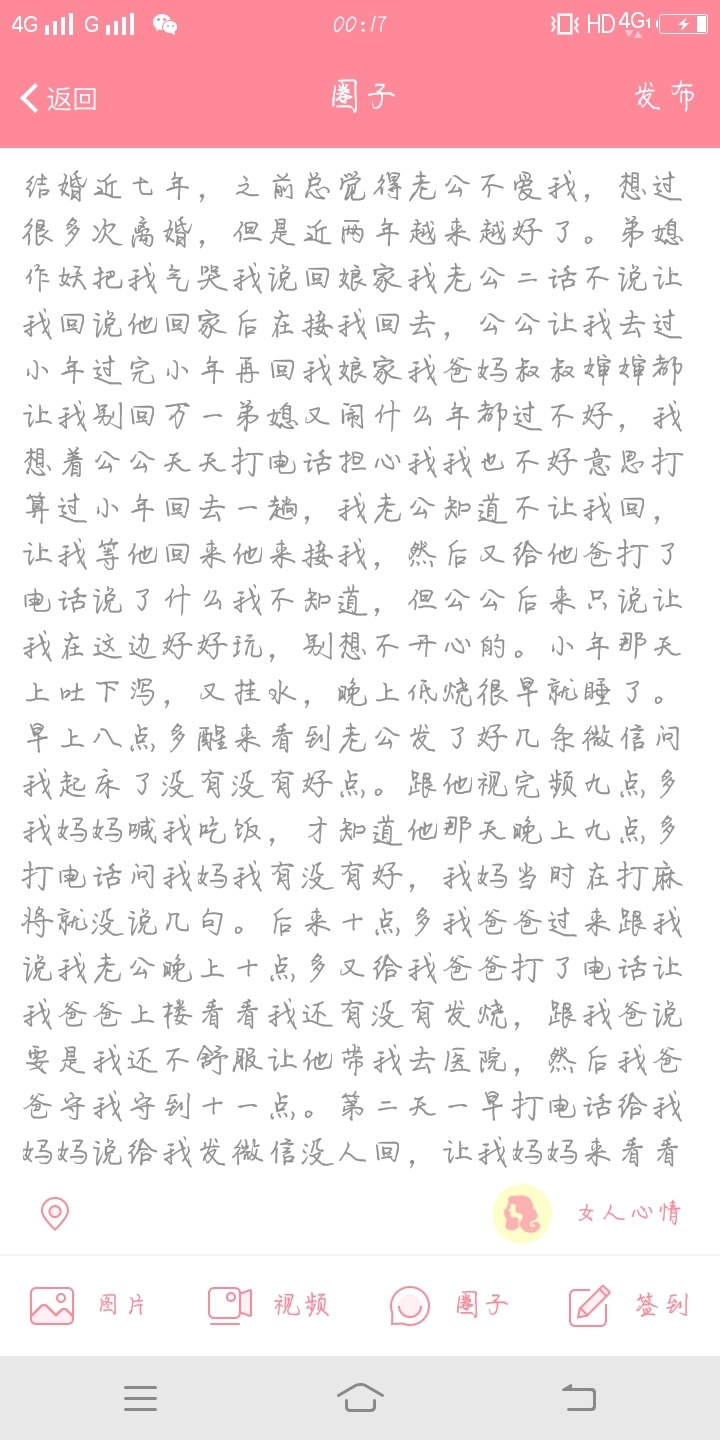 4G G 00:17 HD 4G1
返回 圈子 发布
结婚近七年，之前总觉得老公不爱我，想过
很多次离婚，但是近两年越来越好了。弟媳
作妖把我气哭我说回娘家我老公二话不说让
我回说他回家后在接我回去，公公让我去过
小年过完小年再回我娘家我爸妈叔叔婶婶都
让我别回万一弟媳又闹什么年都过不好，我
想着公公天天打电话担心我我也不好意思打
算过小年回去一趟，我老公知道不让我回，
让我等他回来他来接我，然后又给他爸打了
电话说了什么我不知道，但公公后来只说让
我在这边好好玩，别想不开心的。小年那天
上吐下泻，又挂水，晚上低烧很早就睡了。
早上八点多醒来看到老公发了好几条微信问
我起床了没有没有好点。跟他视完频九点多
我妈妈喊我吃饭，才知道他那天晚上九点多
打电话问我妈我有没有好，我妈当时在打麻
将就没说几句。后来十点多我爸爸过来跟我
说我老公晚上十点多又给我爸爸打了电话让
我爸爸上楼看看我还有没有发烧，跟我爸说
要是我还不舒服让他带我去医院，然后我爸
爸守我守到十一点。第二天一早打电话给我
妈妈说给我发微信没人回，让我妈妈来看看
女人心情
图片 视频 圈子 签到